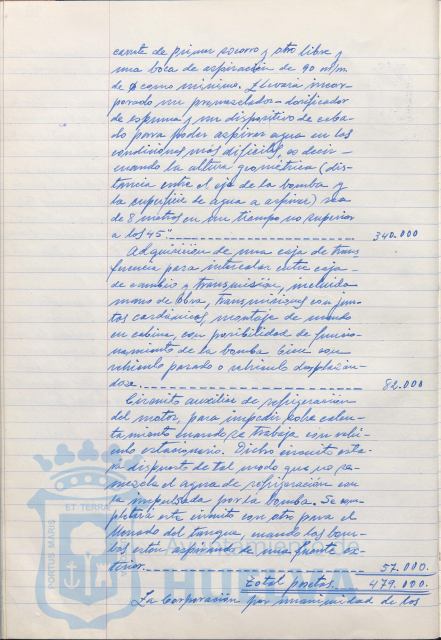 carrete de primer socorro y otro libre y
una boca de aspiración de 90 m/m.
de ø como mínimo. Llevará incor-
porado un premezclador-dosificador
de espuma y un dispositivo de ceba-
do para poder aspirar agua en las
condiciones más difíciles, es decir
cuando la altura geométrica (dis-
tancia entre el eje de la bomba y
la superficie de agua a aspirar) sea
de 8 metros en un tiempo no superior
a los 45" 340.000
Adquisición de una caja de trans
ferencia para intercalar entre caja
de cambio y transmisión, incluida
mano de obra, transmisiones con jun-
tas cardánicas, montaje de mando
en cabina, con posibilidad de funcio-
namiento de la bomba bien con
vehículo parado o vehículo desplazán-
dose. 82.000
Circuito auxiliar de refrigeración
del motor, para impedir sobre calen-
tamiento cuando se trabaja con vehí-
culo estacionario. Dicho circuito esta-
rá dispuesto de tal modo que no se
mezcla el agua de refrigeración con
la impulsada por la bomba. Se com-
pletará este circuito con otro para el
llenado del tanque, cuando las bom-
bas estén aspirando de una fuente ex-
terior. 57.000.
Total pesetas. 479.000.
La Corporación por unanimidad de los
PORTUS MARIS ET TERRA
Ayuntamiento
HUELVA